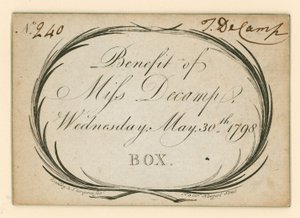 No. 240
T. DeCamp
Benefit of
Miss Decamp.
Wednesday, May, 30.th 1798
BOX.